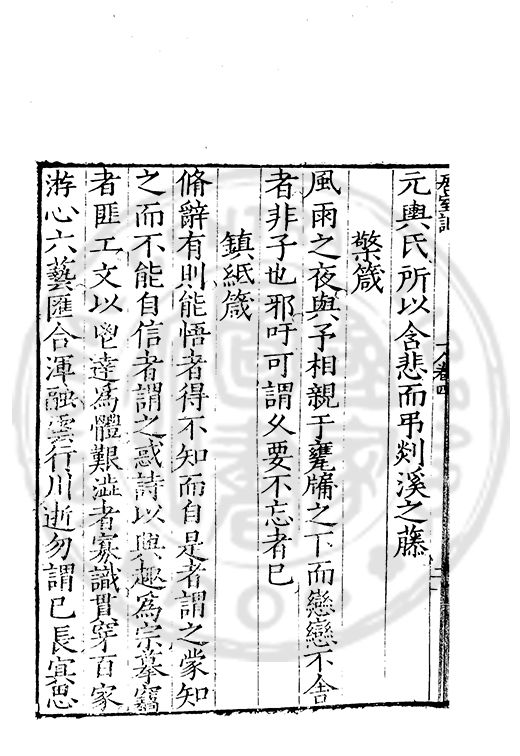 卷四
元輿氏所以含悲而弔剡溪之藤
檠箴
風雨之夜與予相親于甕牖之下而戀戀不舍
者非子也邪吁可謂久要不忘者已
鎮紙箴
脩辭有則能悟者得不知而自是者謂之蒙知
之而不能自信者謂之惑詩以興趣為宗摹竊
者匪工文以鬯達為體艱澁者寡識貫穿百家
游心六藝匯合渾融雲行川逝勿謂已長寘思